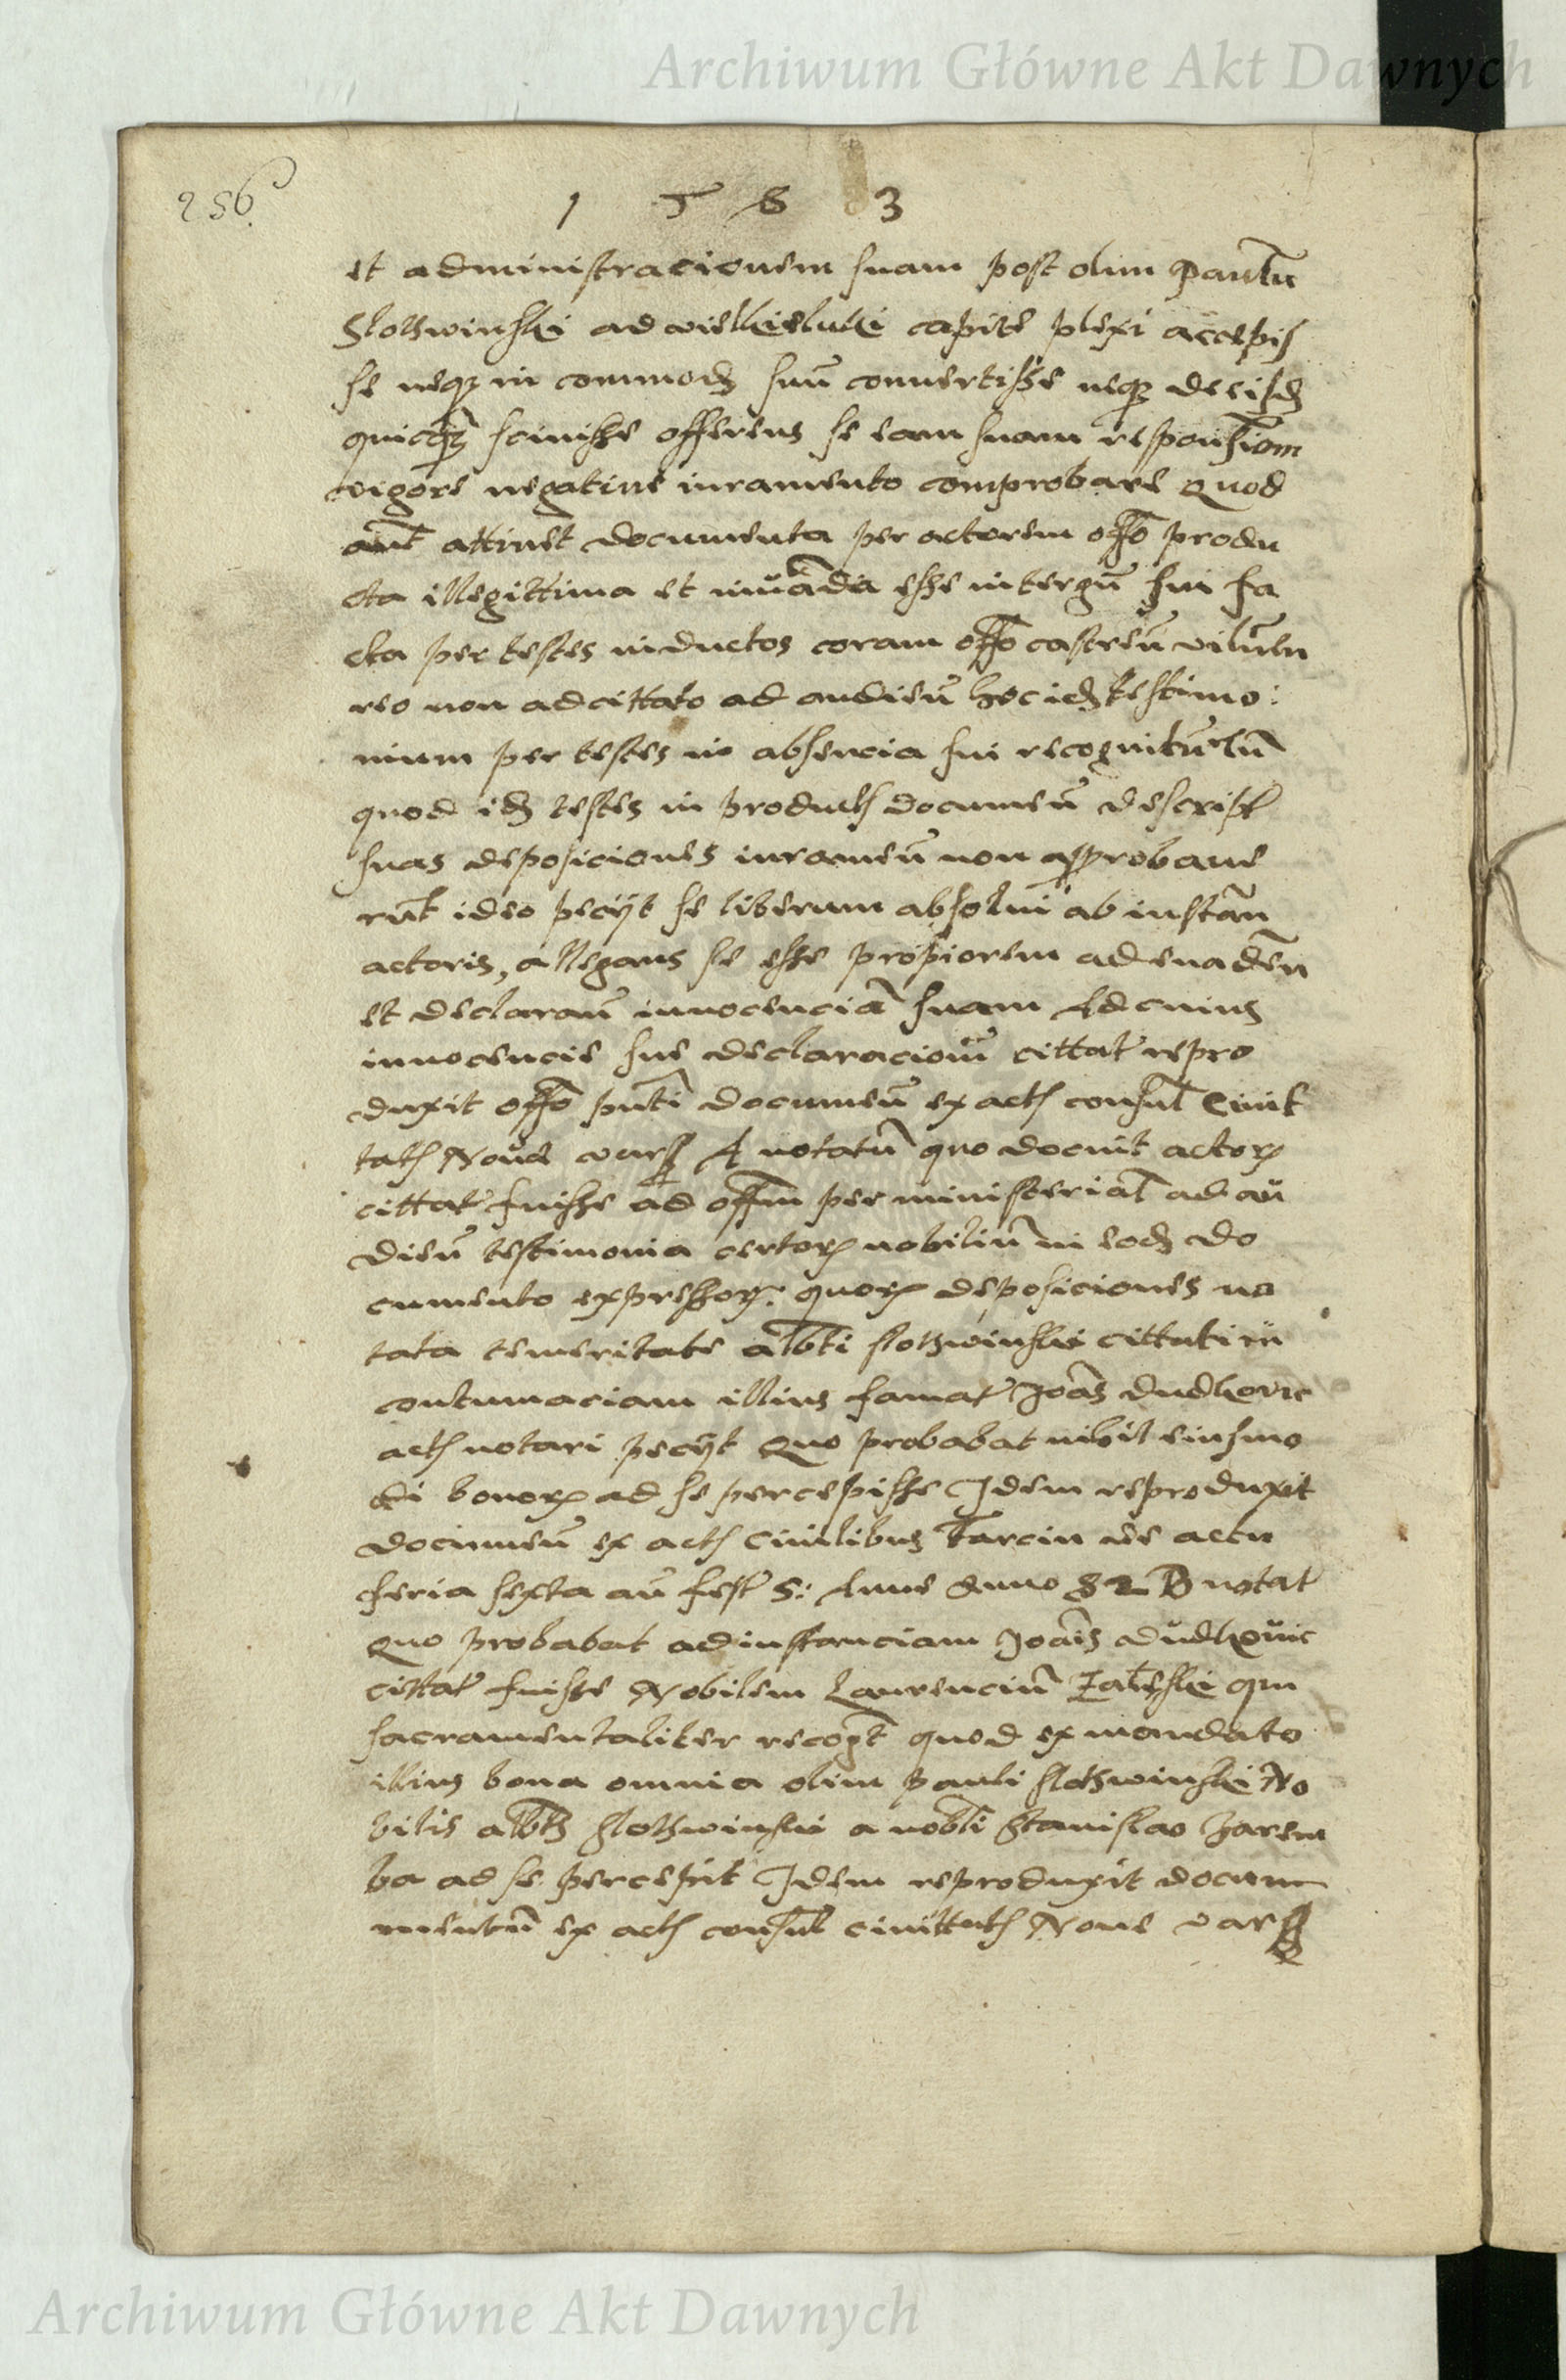 Archiwum Główne Akt Dawnych
256
1 5 8 3
et administracionem suam post olim Paulũ
Slothwinski ad wielkieluki capite plexi accepis
se neqz in commodũ suũ convertisse neqz de eisd
quicqz scivisse offerens se eam suam responsiom
vigore negative iuramento comprobare Quod
aut attinet documenta per actorem offo produ
cta illegittima et invãda esse in tergũ sui fa
cta per testes inductos coram offo castreũ
reo non adcittato ad audieũ hoc testimo:
nium per testes in absencia sui recognitũ tũ
quod iid testes in produts documeũ descript
suas deposiciones iurameũ non approbave
rũt ideo pecÿt se liberum absolui ab instãn
actoris, allegans se esse propiorem ad evadẽn
et declarauũ innocenciã suam Ad cuius
innocencie sue declaracionẽ cittat repro
duxit offo pñti documeũ ex acts consul Ciuit
tats Noue vars notatũ quo docuit actorẽ
cittat fuisse ad offm per ministerial ad au
dieũ testimonia certorz nobiliũ in eod do
cumento expressorz: quorz deposiciones no
tata temeritate albti slothwinski cittati in
contumaciam illius famat Joãs dudkovic
acts notari pecÿt Quo probabat nihil eiusmo
di bonorz ad se percepisse Idem reproduxit
documeũ ex acts Ciuilibus de actu
feria sexta añ fest S: Anno 82 notat
Quo probabat ad instanciam Joãis dudkouic
cittat fuisse Nobilem Laurenciũ Zaleski qui
sacramentaliter recogt quod ex mandato
illius bona omnia olim pauli slothwinski No
bilis albts slothwinski a nobli Stanislao Jarem
ba ad se percepit Idem reproduxit docum
mentũ ex acts consul ciuittats Noue vars
Archiwum Główne Akt Dawnych